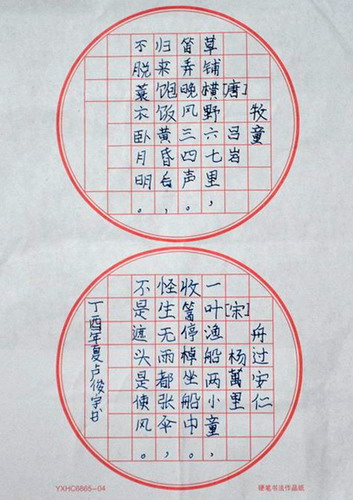 牧童
[唐]吕岩
草铺横野六七里，
笛弄晚风三四声。
归来饱饭黄昏后，
不脱蓑衣卧月明。
舟过安仁
[宋]杨萬里
一叶渔船两小童，
收篙停棹坐船中。
怪生无雨都张伞，
不是遮头是使风。
丁酉年夏卢俊宇书
YXHC6865-04
硬笔书法作品纸